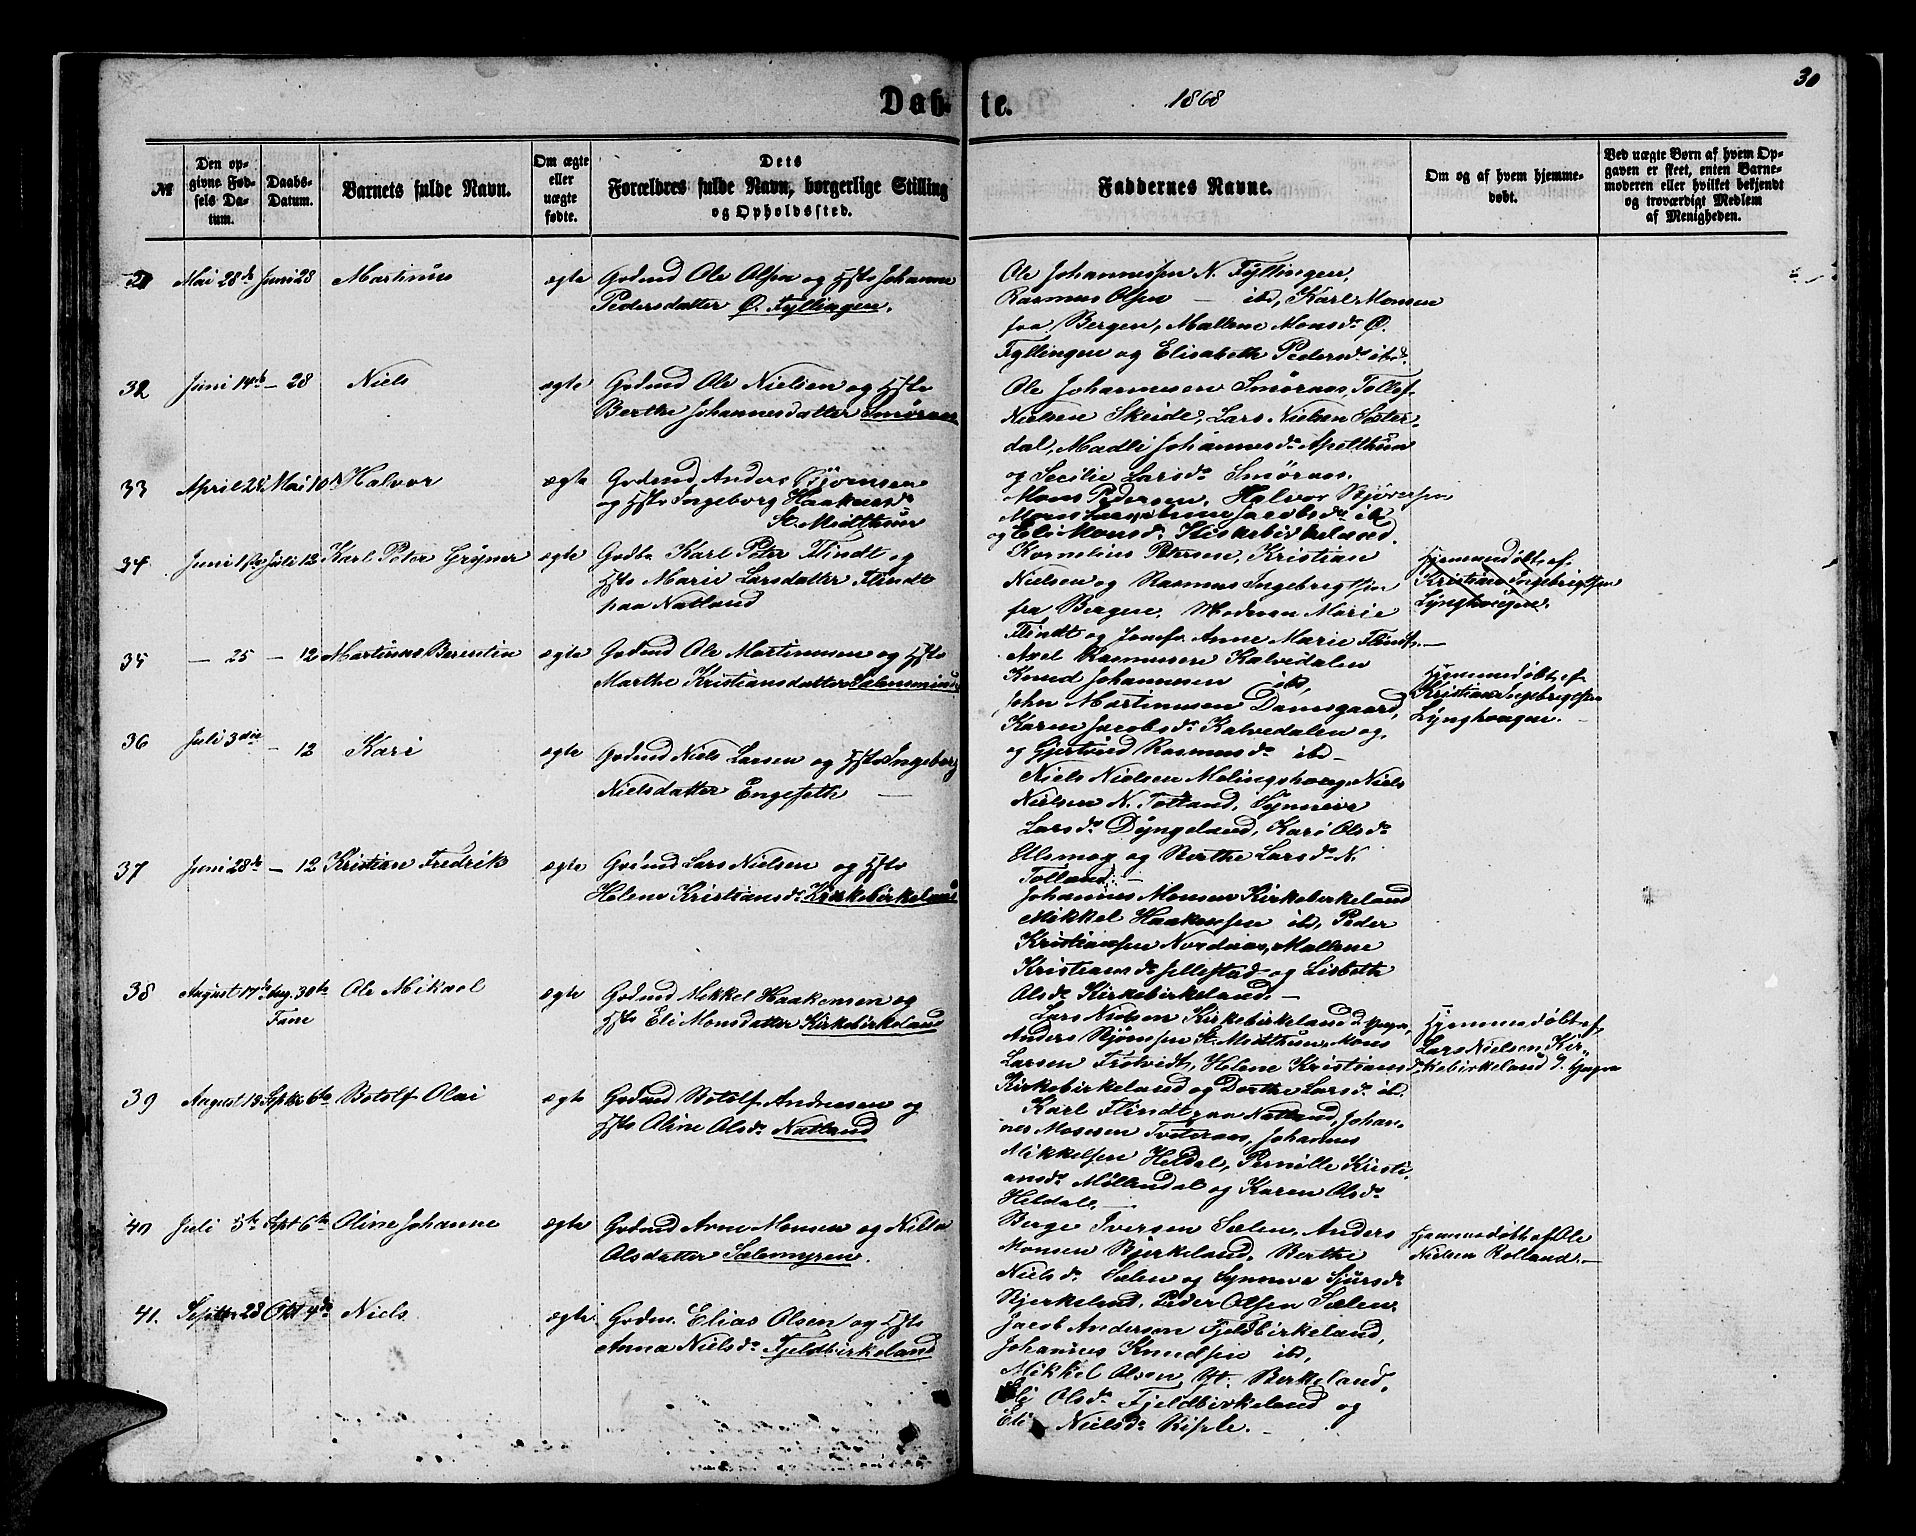 30
Døbte. 1868
№
Den opgivne Fødsels Datum.
Daabs-Datum.
Barnets fulde Navn.
Om ægte eller uægte fødte.
Dets Forældres fulde Navn, borgerlige Stilling og Opholdssted.
Faddernes Navne.
Om og af hvem hjemmedøbt.
Ved uægte Børn af hvem Opgaven er skeet, enten Barnemoderen eller hvilket bekjendt og troværdigt Medlem af Menigheden.
Mai 28de Juni 28 Martinus ægte Gdmd Ole Olsen og Hstr Johanne
Pedersdatter Ø. Fyllingen.
Ole Johannessen N. Fyllingen,
Rasmus Olsen — ibd, Karl Monsen
fra Bergen, Mallene Monsdr Ø.
Fyllingen og Elisabeth Pedersdr ibd.
32 Juni 14de — 28 Niels ægte Gdmd Ole Nielsen og Hstr
Berthe Johannesdatter Smøraas
Ole Johannesen Smøraas, Tollef
Nielsen Skeide, Lars Nielsen Sæter-
dal, Madli Johannesdr Apelthun
og Secilie Larsdr Smøraas.
33 April 28 Mai 10 Halvor ægte Gdmd Anders Bjørnsen
og Hstr Ingeborg Haakensdr
St. Midthun
Mons Pedersen, Halvor Bjørnsen
Mons Anne Jacobsdr ibd
og Eli Monsdr Kirkebirkeland.
34. Juni 1ste Juli 12 Karl Peter Gryner ægte Gdbr Karl Peter Flindt og
Hstr Marie Larsdatter Flindt
paa Natland
Kornelius Petersen, Kristian
Nielsen og Rasmus Ingebrigtsen
fra Bergen, Moderen Marie
Flindt og Jomfr Anne Marie Flindt. —
Hjemmedøbt af
Kristian Ingebrigtsen
Lynghougen.
35 — 25 — 12 Martinus Berentin ægte Gdmd Ole Martinusen og Hstr
Marthe Kristiansdatter Sælensminde
Axel Rasmusen Kalvedalen
Knud Johannesen ibd,
John Martinusen Damsgaard,
Karen Jacobsdr Kalvedalen og,
og Gjertrud Rasmusdr ibd —
Hjemmedøbt af
Kristian Ingebrigtsen
Lynghougen. —
36 Juli 3die — 12 Kari ægte Gdmd Niels Larsen og Hstr Ingeborg
Nielsdatter Engeseth —
Niels Nielsen Melingshoug, Niels
Nielsen N. Totland, Synneve
Larsdr Dyngeland, Kari Olsdr
Ulsmog og Berthe Larsdr N.
Totland. —
37 Juni 28de — 12 Kristian Fredrik ægte Gdmd Lars Nielsen og Hstr
Helene Kristiansdr Kirkebirkeland
Johannes Monsen Kirkebirkeland
Mikkel Haakensen ibd, Peder
Kristiansen Nordnæs, Mallene
Kristiansdr Jellestad og Lisbeth
Olsdr Kirkebirkeland. —
38 August 17de Aug. 30te Ole Mikael ægte Gdmd Mikkel Haakensen og
Fane Hstr Eli Monsdatter Kirkebirkeland
Lars Nielsen Kirkebirkeland d. yngre,
Anders Bjørnsen St. Midthun, Mons
Larsen Frotvedt, Helene Kristiansdr
Kirkebirkeland og Dorthe Larsdr ibd.
Hjemmedøbt af
Lars Nielsen Kir-
kebirkeland d. yngre
39 August 13 Septbr 6te Botolf Olai ægte Gdmd Botolf Andersen og
Hstr Oline Olsdr Natland
Karl Flindt paa Natland, Johan-
nes Mosesen Tveteraas, Johannes
Mikkelsen Heldal, Pernille Kristi-
ansdr Møllendal og Karen Olsdr
Heldal. —
40 Juli 5te Sept 6te Oline Johanne ægte Gdmd Arne Monsen og Nilla
Olsdatter Sælemyren.
Berge Iversen Sælen, Anders
Monsen Bjerkeland, Berthe
Nielsdr Sælen og Synneve Sjursdr
Bjerkeland, Peder Olsen Sælen.
Hjemmedøbt af Ole
Nielsen Rolland. —
41. Septbr 28 Okt 4de Niels. ægte Gdmd. Elias Olsen og Hstr
Anna Nielsdr Fjeldbirkeland
Jacob Andersen Fjeldbirkeland,
Johannes Knudsen ibd,
Mikkel Olsen Yt. Berkeland,
Eli Olsdr Fjeldbirkeland og
Eli Nielsdr Riple. —